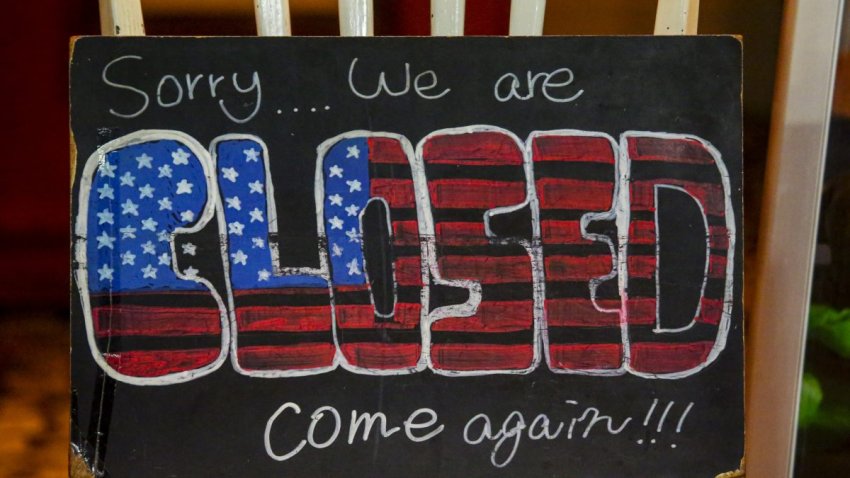 Sorry..... We are
CLOSED
Come again!!!